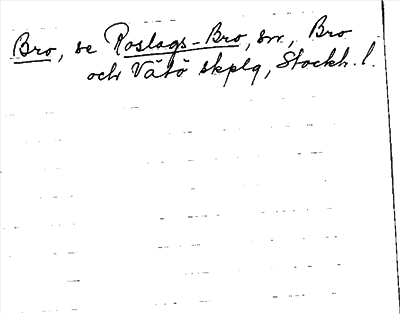 Bro, se Roslags-Bro, sn., Bro
och Vätö skplg, Stockh. l.